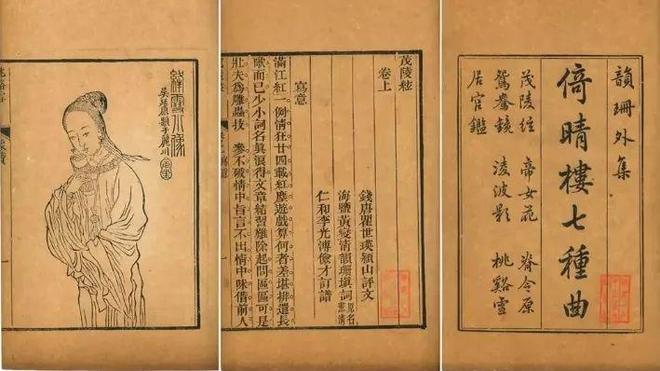 韻珊外集
倚晴樓七種曲
茂陵絃 帝女花 脊令原
鴛鴦鏡 凌波影 桃谿雪
居官鑑
茂陵絃
卷上
錢唐瞿世瑛穎山評文
海鹽黃燮清韻珊填詞 原名憲清
仁和李光溥儉才訂譜
寫意
滿江紅一例情狂廿四載紅塵遊戲算何者差堪排遣長
歌而已少小詞名眞浪得文章結習難除起問區區可是
壯夫爲雕蟲技 參不破情中旨言不出情中味借前人
絳雪小像